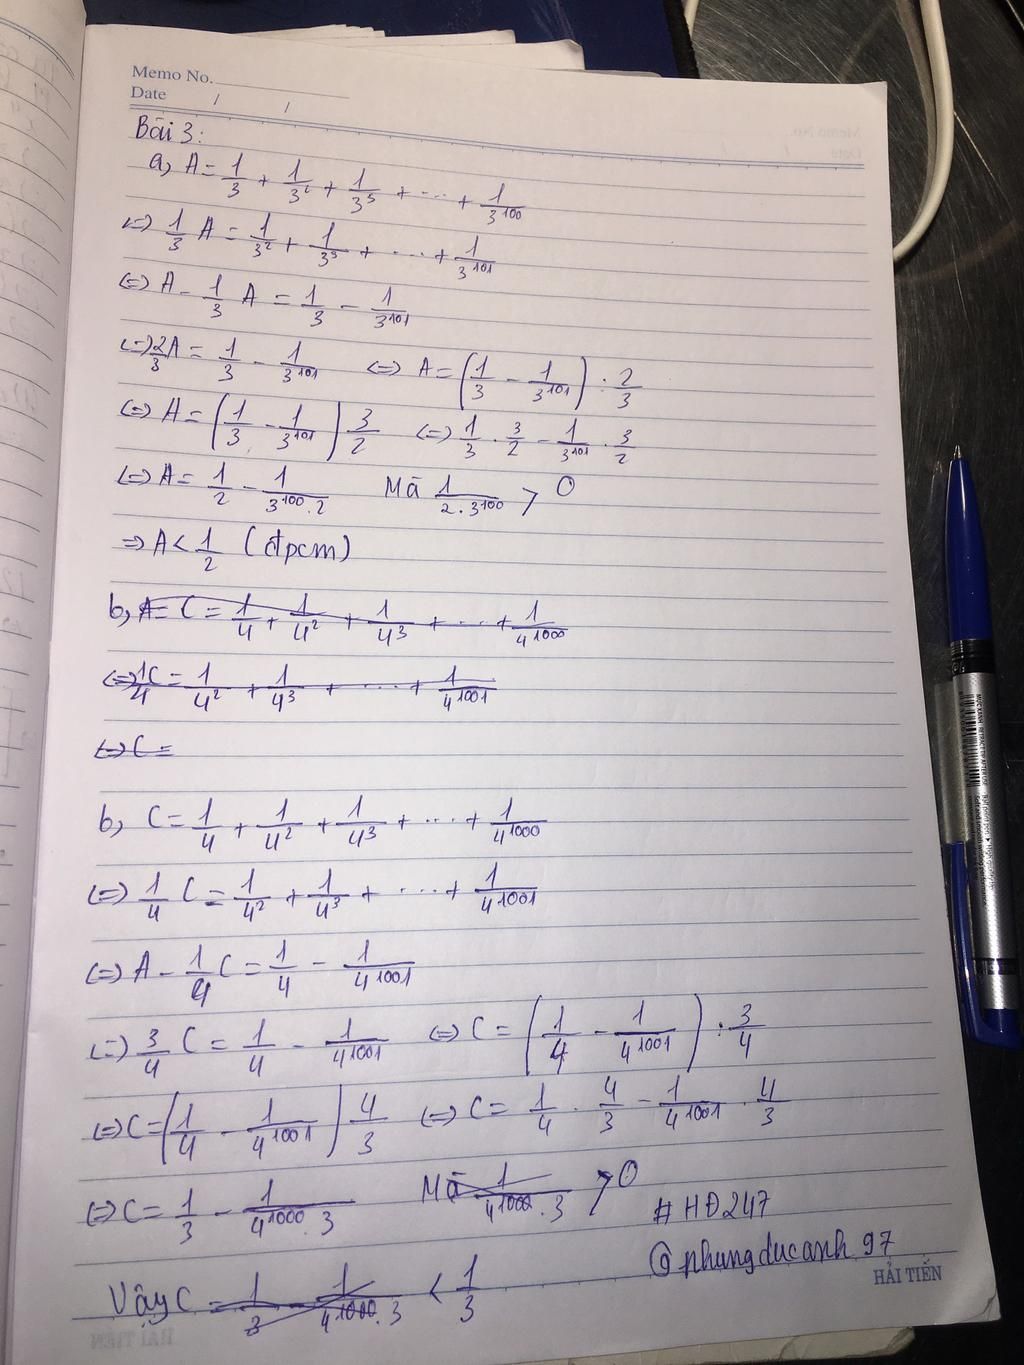 Memo No.
Date / /
Bài 3:
a, A = 1/3 + 1/3² + 1/3⁵ + ... + 1/3¹⁰⁰
<=> 1/3 A = 1/3² + 1/3³ + ... + 1/3¹⁰¹
<=> A - 1/3 A = 1/3 - 1/3¹⁰¹
<=> 2/3 A = 1/3 - 1/3¹⁰¹ <=> A = (1/3 - 1/3¹⁰¹) : 2/3
<=> A = (1/3 - 1/3¹⁰¹) 3/2 <=> 1/3 . 3/2 - 1/3¹⁰¹ . 3/2
<=> A = 1/2 - 1/3¹⁰⁰.2 Mà 1/2.3¹⁰⁰ > 0
=> A < 1/2 (đpcm)
b, A = C = 1/4 + 1/4² + 1/4³ + ... + 1/4¹⁰⁰⁰
<=> 1/4 C = 1/4² + 1/4³ + ... + 1/4¹⁰⁰¹
<=> C =
b, C = 1/4 + 1/4² + 1/4³ + ... + 1/4¹⁰⁰⁰
<=> 1/4 C = 1/4² + 1/4³ + ... + 1/4¹⁰⁰¹
<=> A - 1/4 C = 1/4 - 1/4¹⁰⁰¹
<=> 3/4 C = 1/4 - 1/4¹⁰⁰¹ <=> C = (1/4 - 1/4¹⁰⁰¹) : 3/4
<=> C = (1/4 - 1/4¹⁰⁰¹) 4/3 <=> C = 1/4 . 4/3 - 1/4¹⁰⁰¹ . 4/3
<=> C = 1/3 - 1/4¹⁰⁰⁰.3 Mà 1/4¹⁰⁰⁰.3 > 0
# HĐ247
@nhungducanh97
Vậy C = 1/3 - 1/4¹⁰⁰⁰.3 < 1/3
HẢI TIẾN